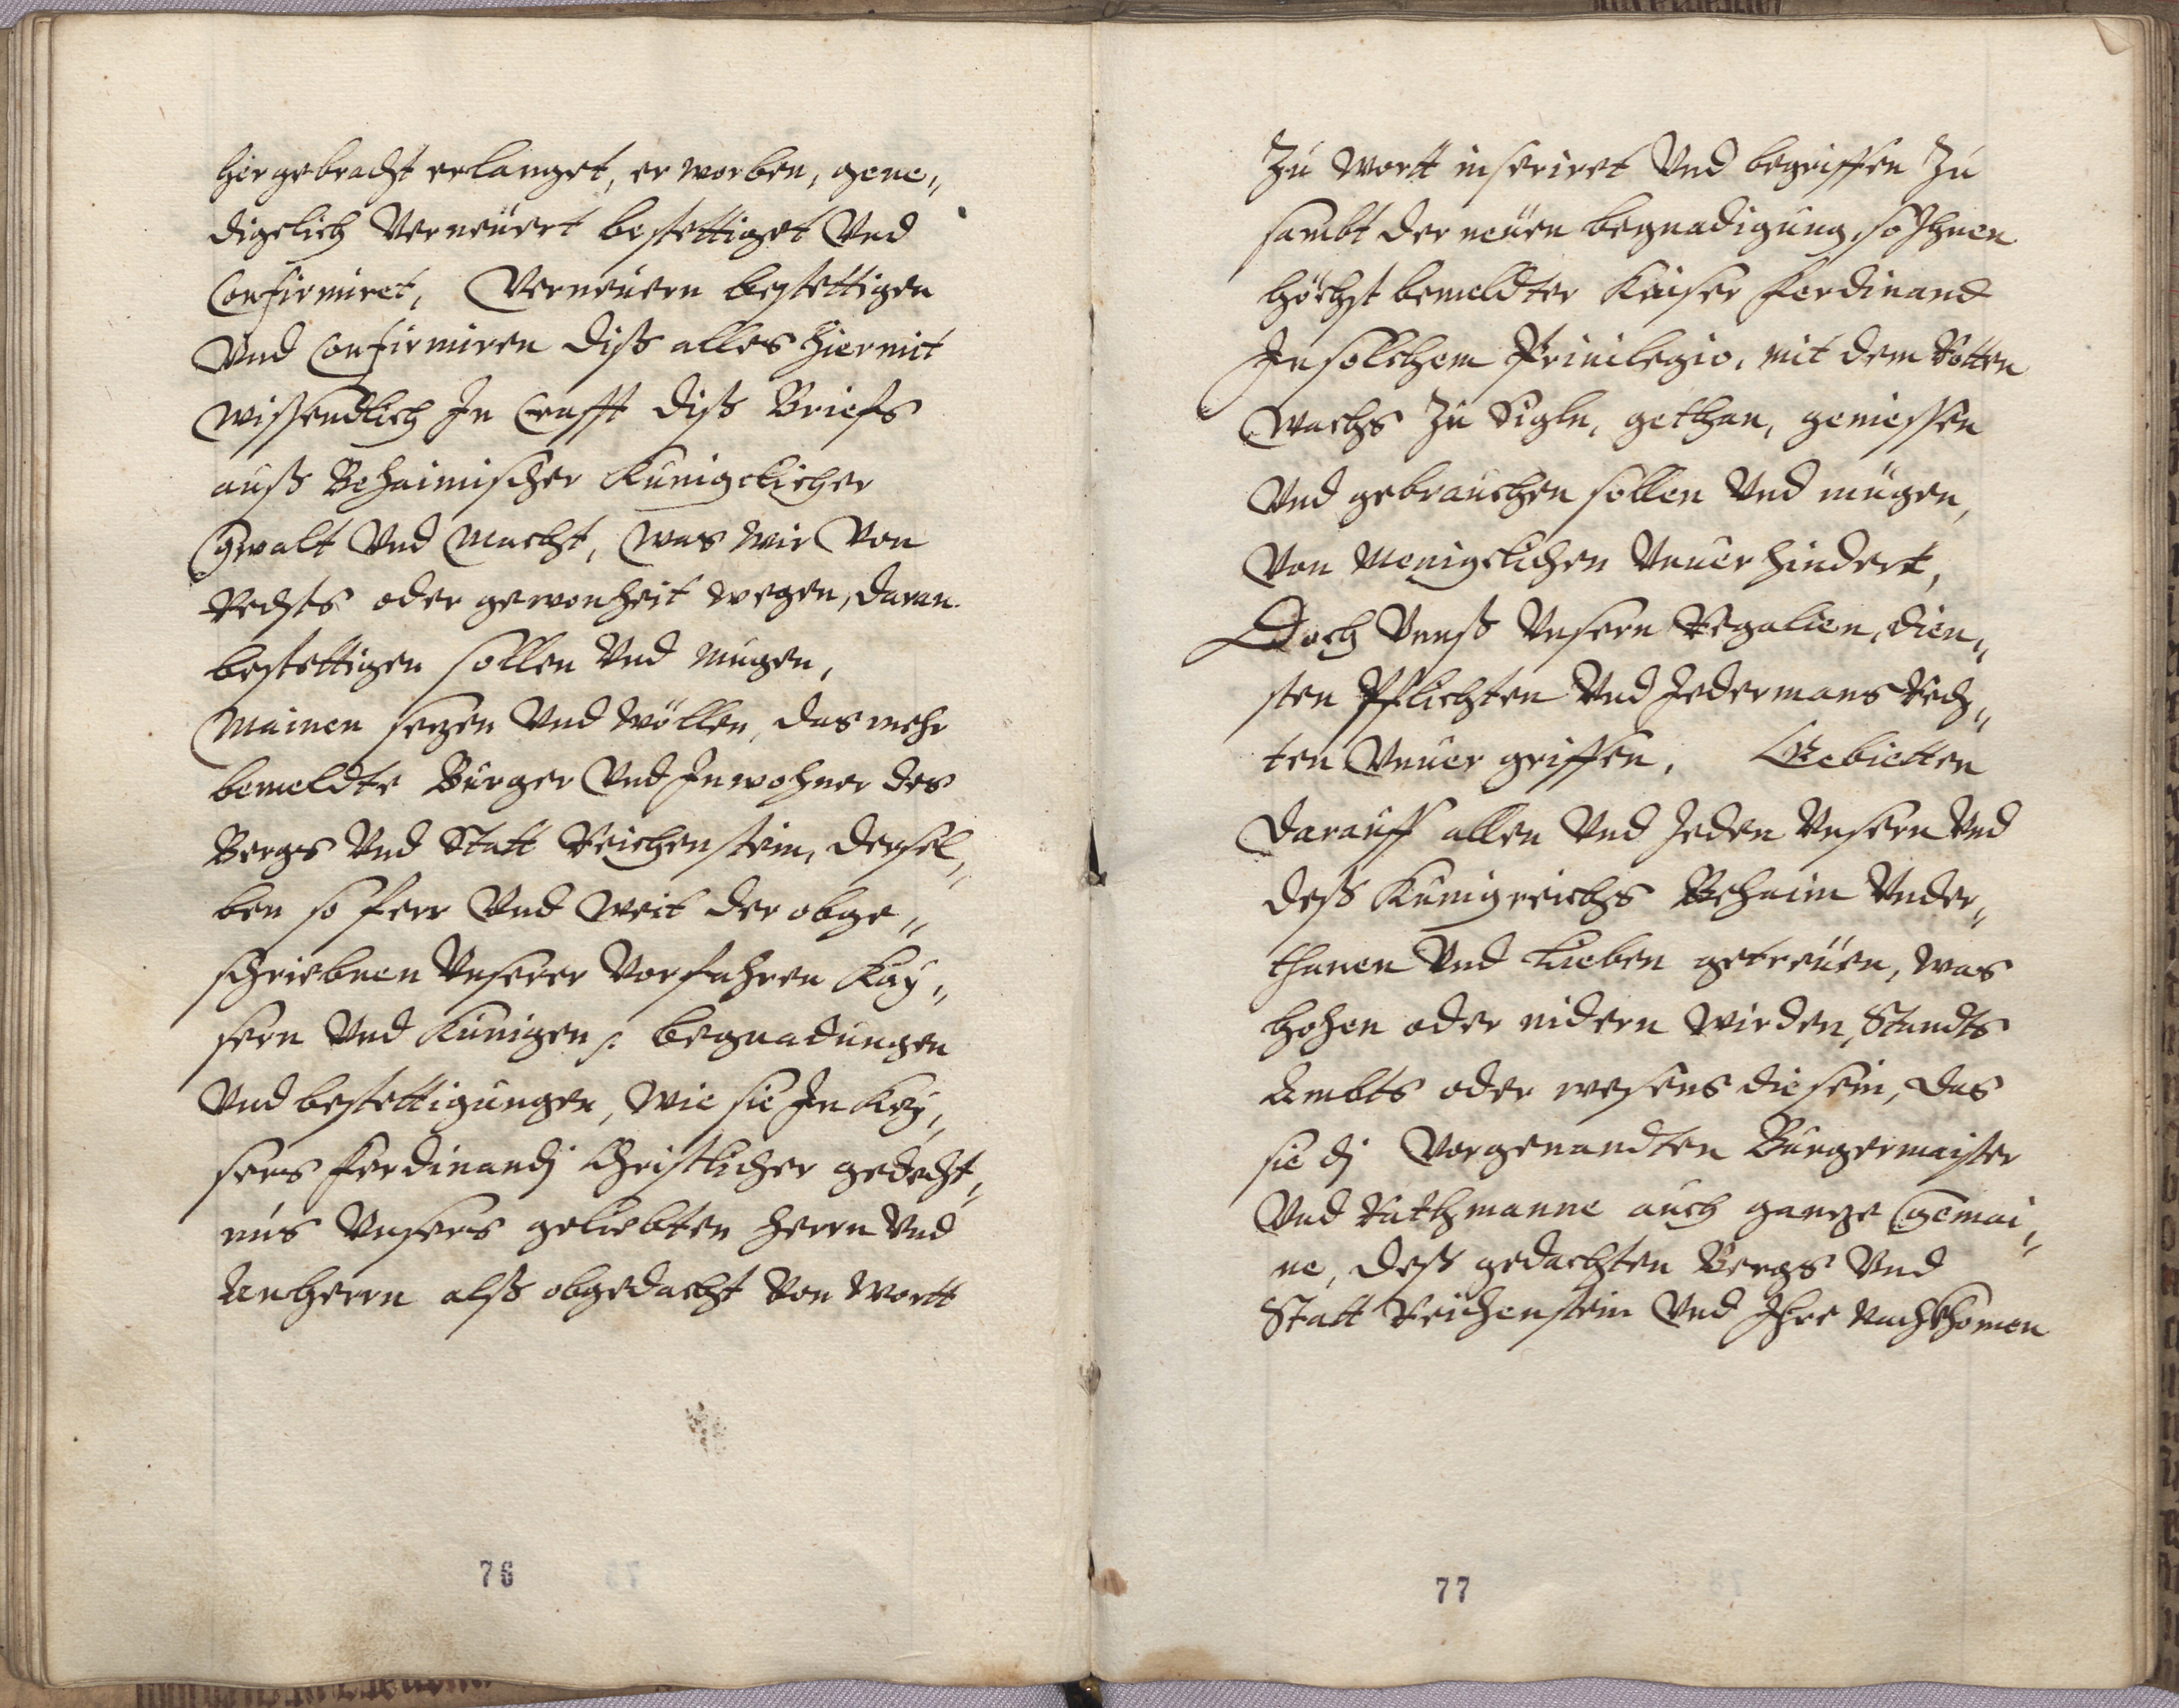 hergebracht erlanget, erworben, gene„
digclich Verneuert bestettiget Vnd
Confirmiret, Verneuern bestettigen
Vnd Confirmiren diß alles hiermit
wissendlich In Crafft diß Briefs
auß Behaimischer Kunigclicher
Gwalt Vnd Macht, Was wir Von
Rechts oder gewonheit wegen, daran
bestettigen sollen Vnd mugen,
Mainen sezen Vnd wöllen, das mehr
bemeldte Burger Vnd Inwohner des
Bergs Vnd Statt Reichenstein, dersel„
ben so ferr Vnd weit der obge„
schriebnen Vnserer Vorfahren Kay„
sern Vnd Kunigen /: begnadungen
Vnd bestettigungen, wie sie In Kay„
sers Ferdinandj Christlicher gedecht„
nus Vnsers geliebten herrn Vnd
Anherrn alß obgedacht Von wortt
76
Zu wortt inseriret Vnd begriffen Zu
sambt der neuen begnadigung, so Ihnen
höchst bemeldter Kaiser Ferdinand
In solchem Priuilegio, mit dem Rotten
Wachs Zu Sigln, gethan, geniessen
Vnd gebrauchen sollen Vnd mügen,
Von Menigclichen Vnuerhindert,
Doch Vnnß Vnsern Regalien, dien„
sten Pflichten Vnd Jedermans Rech„
ten Vnuergriffen, Gebietten
darauff allen Vnd Jeden Vnsern Vnd
deß Kunigreichs Behaim Vnder„
thanen Vnd Lieben getreuen, was
hohen oder nidern wirden, Standts
Ambts oder wesens die sein, das
sie dj Vorgenandten Burgermaister
Vnd Rathmanne auch ganze Gemai„
ne, deß gedachten Bergs Vnd
Statt Reichenstein Vnd Ihre Nachkhomen
77